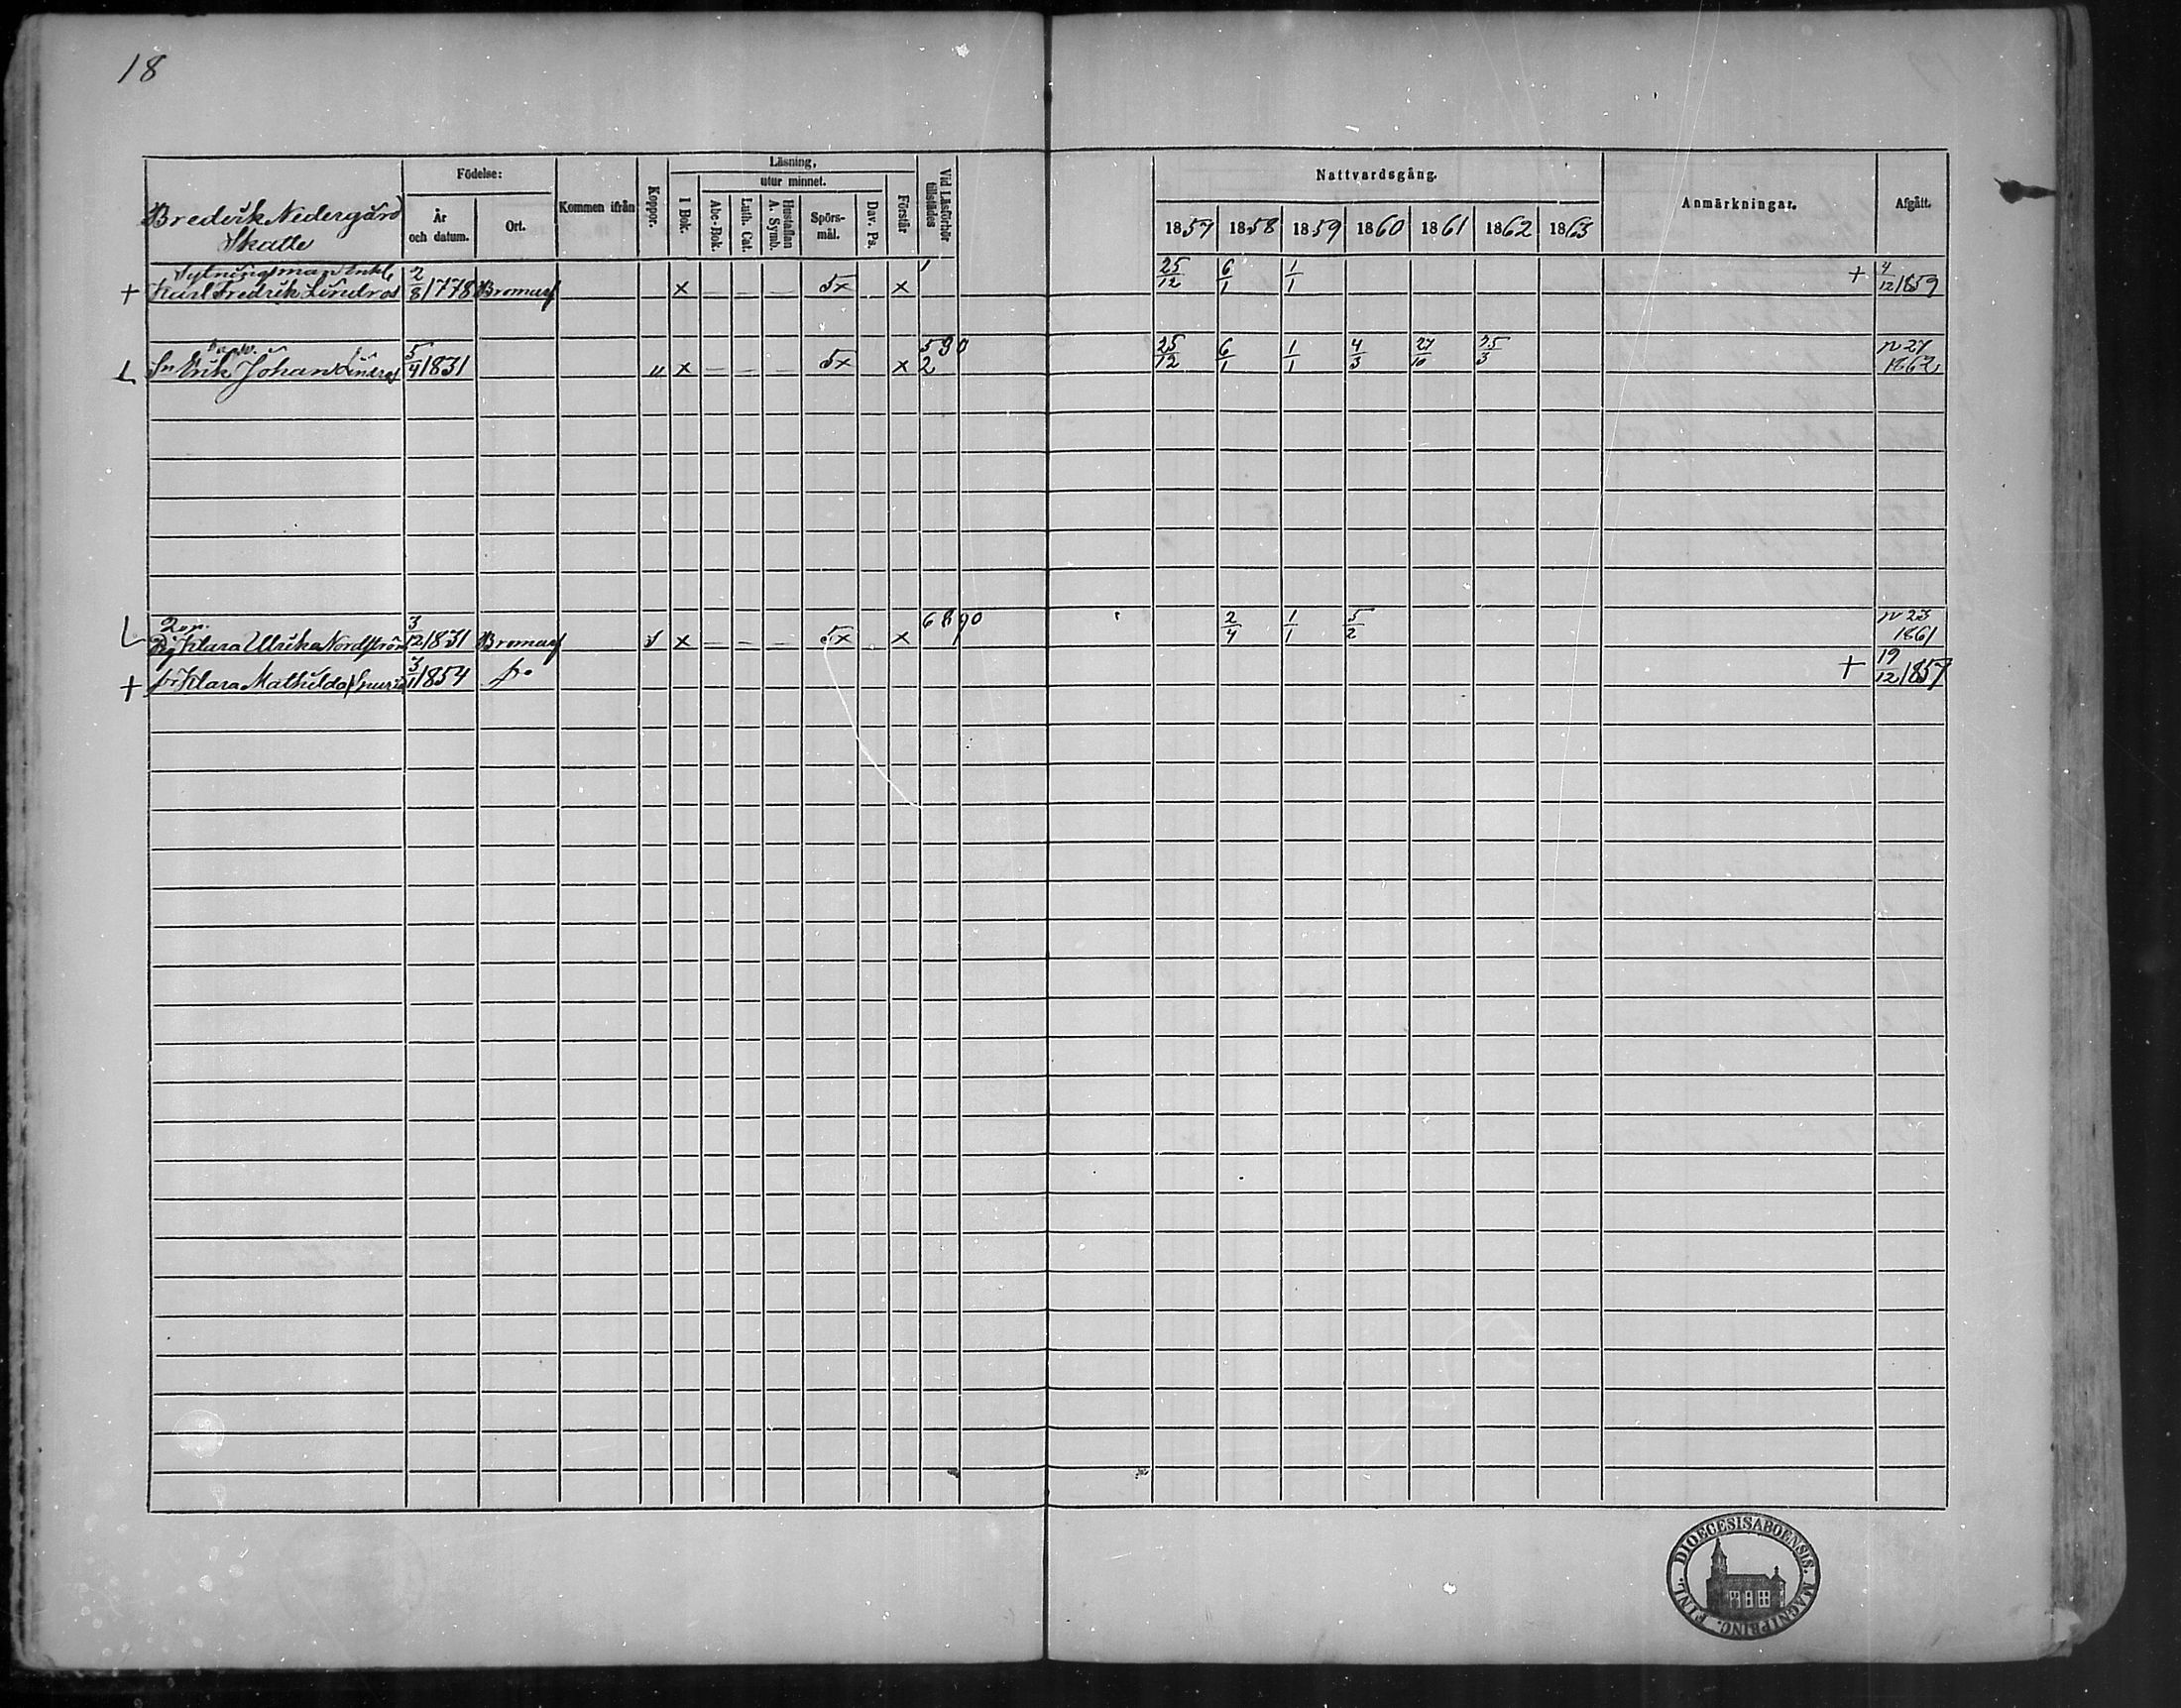 18
Brederik Nedergård
Skatte
Födelse:
År
och datum.
Ort.
Kommen ifrån
Koppor.
Läsning,
I Bok.
utur minnet.
Abc-Bok.
Luth. Cat.
Hustaflan
A. Symb.
Spörs-
mål.
Dav. Ps.
Förstår
Vid Läsförhör
tillstädes
Nattvardsgång.
1857 1858 1859 1860 1861 1862 1863
Anmärkningar.
Afgått.
Sytningsman Enkl.
+ Karl Fredrik Lindros 2/8 1778 Bromarf x — — — 5x x 1 25/12 6/1 1/1 + 4/12 1859
Sn Erik Johan Lindros 5/4 1831 " x — — — 5x x 590 2 25/12 6/1 1/1 4/3 27/10 25/3 p 27 1862
Klara Ulrika Nordström 3/12 1831 Bromarf x — — — 5x x 2/4 1/1 5/2 p 23 1861
+ Klara Mathilda 3/1 1854 + 19/12 1857
FINL. DIOECESIS ABOENSIS. MAGNI PRINC.